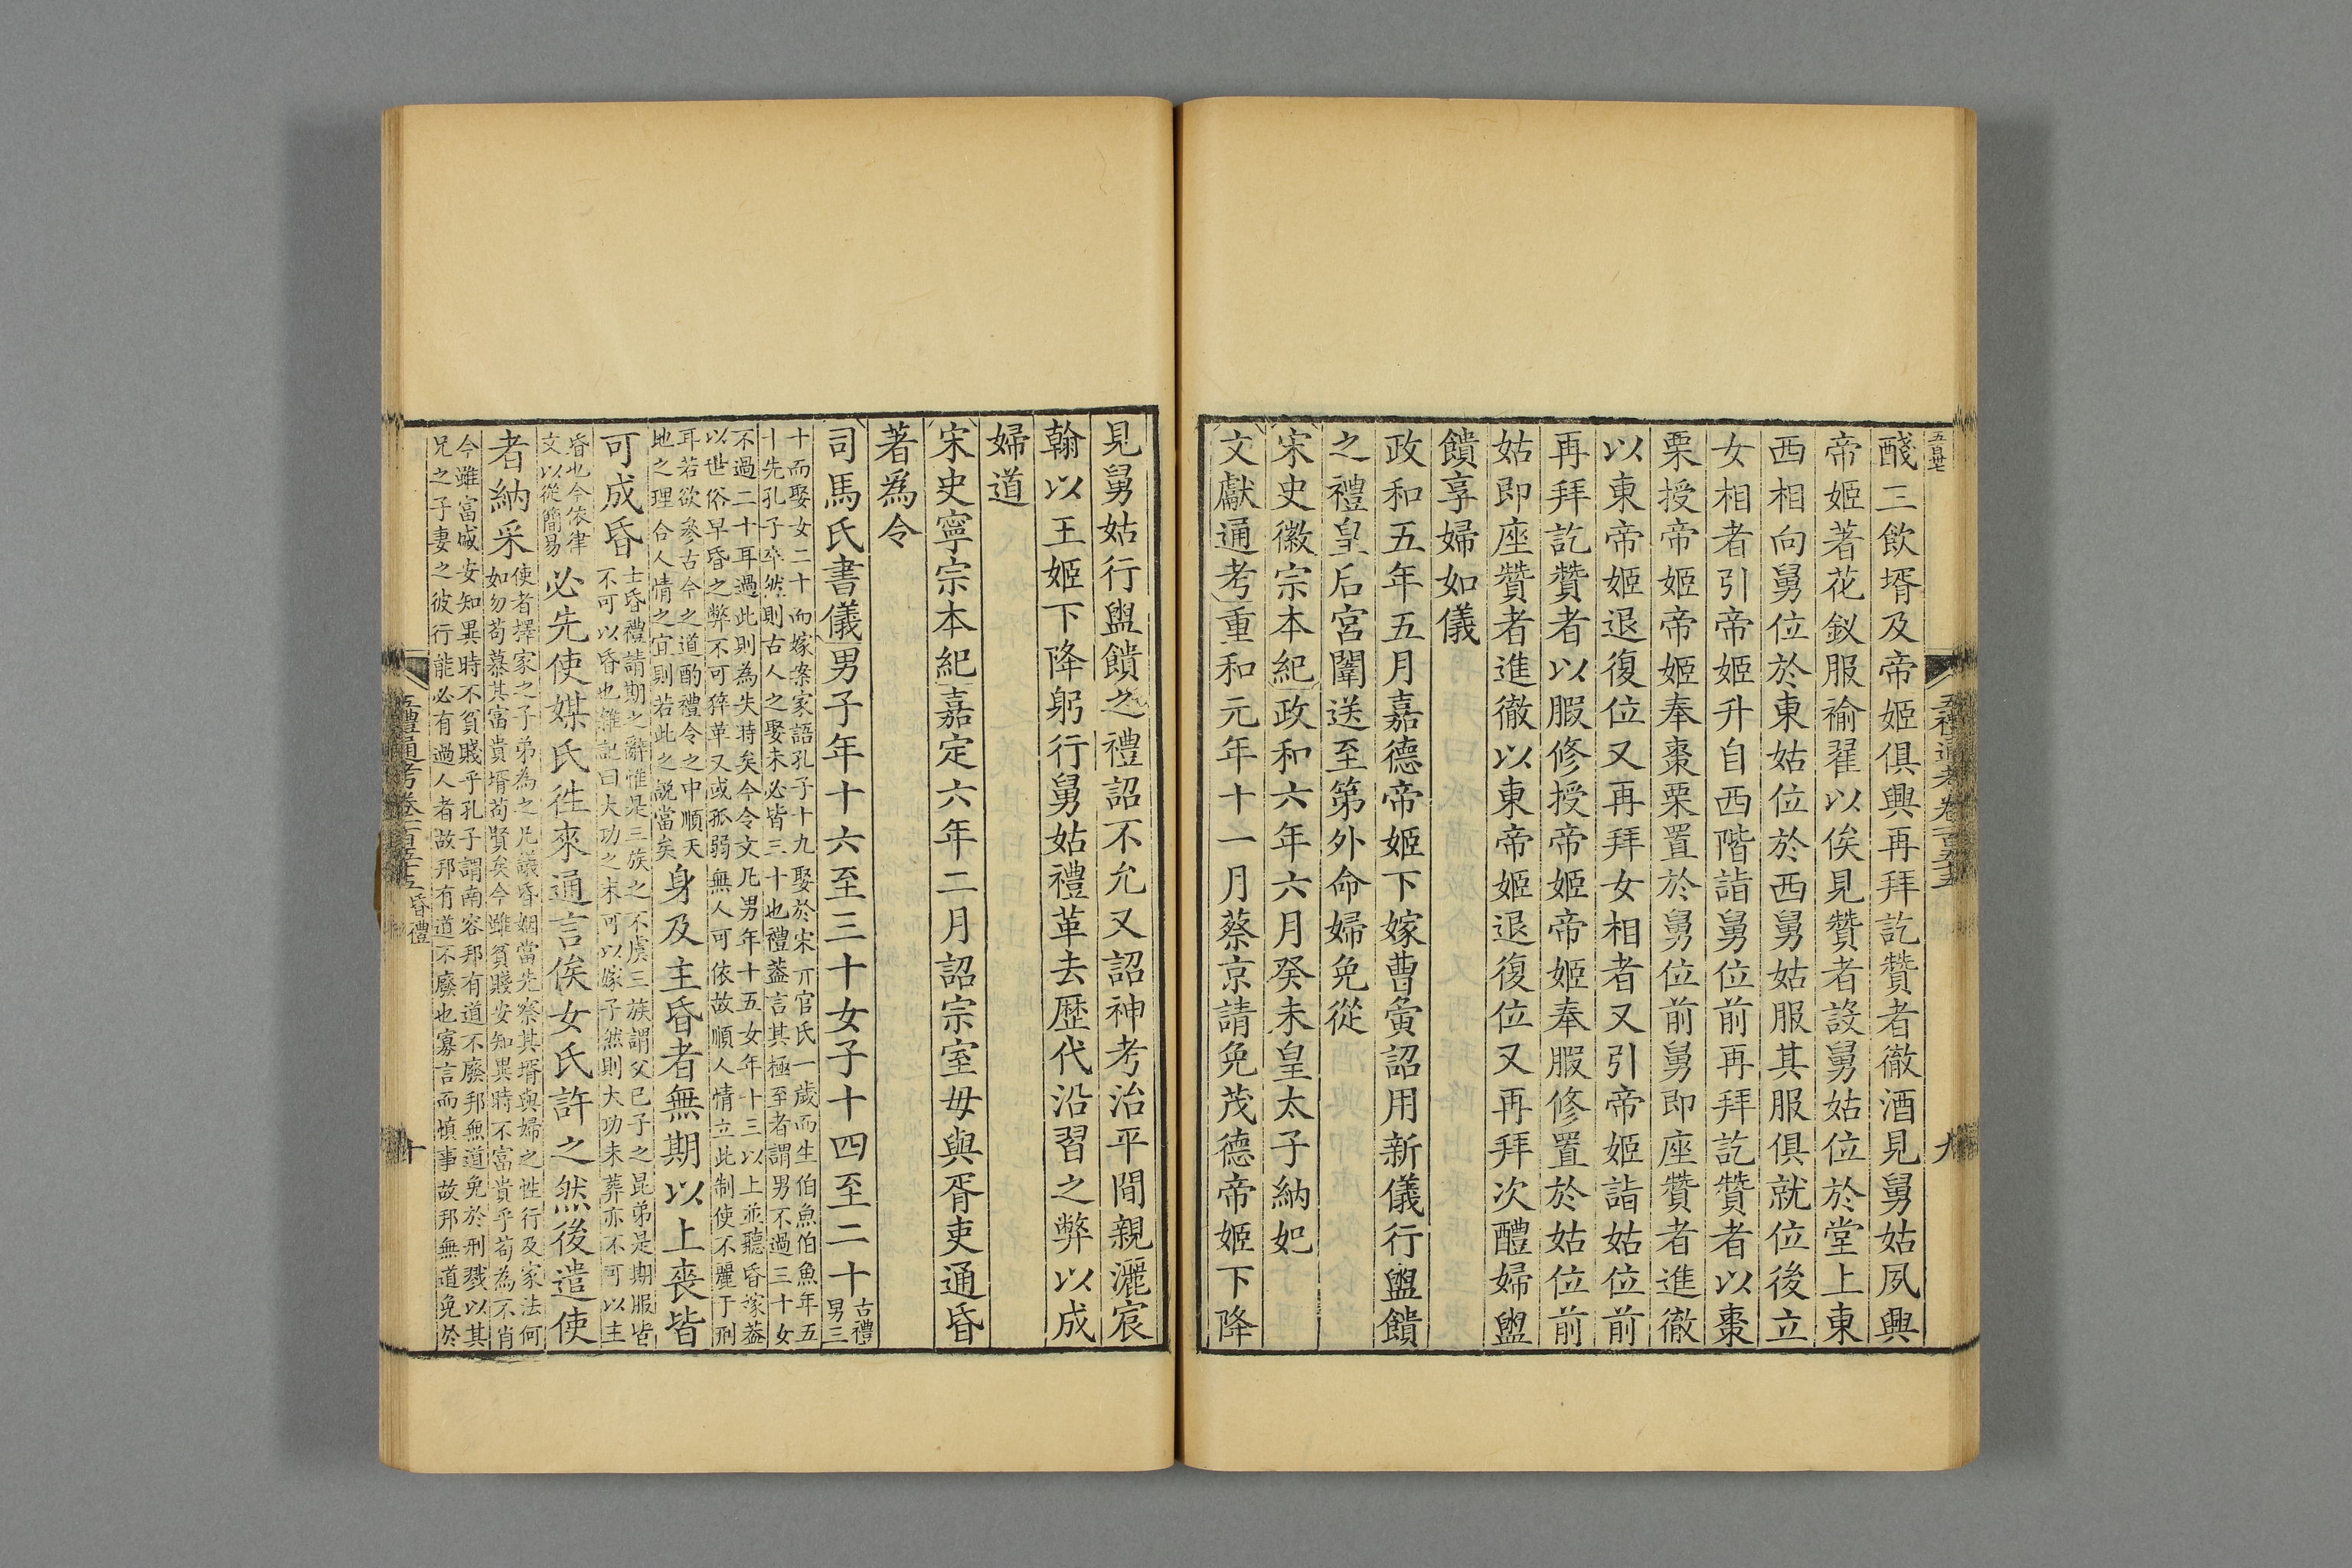 五百卅七
醆三飲壻及帝姬俱興再拜訖贊者徹酒見舅姑夙興
帝姬著花釵服褕翟以俟見贊者設舅姑位於堂上東
西相向舅位於東姑位於西舅姑服其服俱就位後立
女相者引帝姬升自西階詣舅位前再拜訖贊者以棗
栗授帝姬帝姬奉棗栗置於舅位前舅即座贊者進徹
以東帝姬退復位又再拜女相者又引帝姬詣姑位前
再拜訖贊者以腶修授帝姬帝姬奉腶修置於姑位前
姑即座贊者進徹以東帝姬退復位又再拜次醴婦盥
饋享婦如儀
政和五年五月嘉德帝姬下嫁曹夤詔用新儀行盥饋
之禮皇后宮闈送至第外命婦免從
宋史徽宗本紀政和六年六月癸未皇太子納妃
文獻通考重和元年十一月蔡京請免茂德帝姬下降
五禮通考卷一百五十五
九
見舅姑行盥饋之禮詔不允又詔神考治平間親灑宸
翰以王姬下降躬行舅姑禮革去歷代沿習之弊以成
婦道
宋史寧宗本紀嘉定六年二月詔宗室毋與胥吏通昏
著為令
司馬氏書儀男子年十六至三十女子十四至二十古禮
男三
十而娶女二十而嫁案家語孔子十九娶於宋亓官氏一歲而生伯魚伯魚年五
十先孔子卒然則古人之娶未必皆三十也禮蓋言其極至者謂男不過三十女
不過二十耳過此則為失時矣今令文凡男年十五女年十三以上並聽昏嫁蓋
以世俗早昏之弊不可猝革又或孤弱無人可依故順人情立此制使不麗于刑
耳若欲參古今之道酌禮令之中順天
地之理合人情之宜則若此之說當矣身及主昏者無期以上喪皆
可成昏士昏禮請期之辭惟是三族之不虞三族謂父己子之昆弟是期服皆
不可以昏也雜記曰大功之末可以嫁子然則大功未葬亦不可以主
昏也今依律
文以從簡易必先使媒氏往來通言俟女氏許之然後遣使
者納采使者擇家之子弟為之凡議昏姻當先察其壻與婦之性行及家法何
如勿苟慕其富貴壻苟賢矣今雖貧賤安知異時不富貴乎苟為不肖
今雖富盛安知異時不貧賤乎孔子謂南容邦有道不廢邦無道免於刑戮以其
兄之子妻之彼行能必有過人者故邦有道不廢也寡言而慎事故邦無道免於
五禮通考卷一百五十五昏禮
十